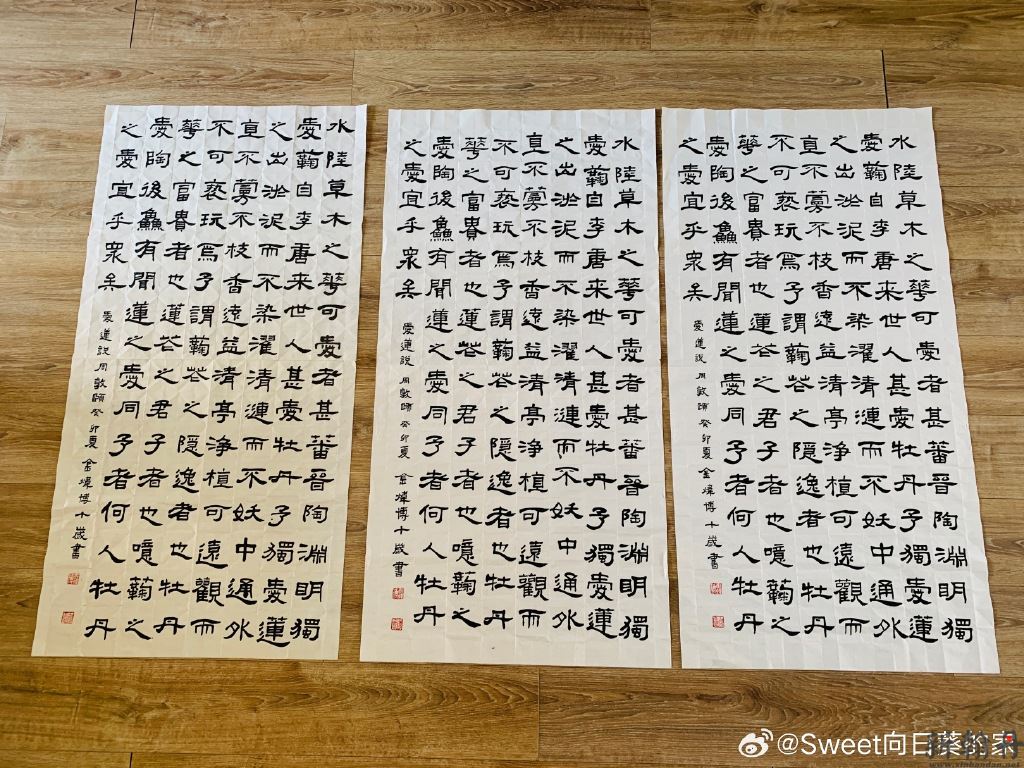 水陸草木之華可愛者甚蕃晉陶淵明獨
愛蘜自李唐來世人甚愛牡丹予獨愛蓮
之出淤泥而不染濯清漣而不妖中通外
直不蔓不枝香遠益清亭淨植可遠觀而
不可褻玩焉予謂蘜花之隱逸者也牡丹
華之富貴者也蓮花之君子者也噫蘜之
愛陶後鱻有聞蓮之愛同予者何人牡丹
之愛宜乎衆矣
愛蓮說周敦頤癸卯夏金博十歲書
水陸草木之華可愛者甚蕃晉陶淵明獨
愛蘜自李唐來世人甚愛牡丹予獨愛蓮
之出淤泥而不染濯清漣而不妖中通外
直不蔓不枝香遠益清亭淨植可遠觀而
不可褻玩焉予謂蘜花之隱逸者也牡丹
華之富貴者也蓮花之君子者也噫蘜之
愛陶後鱻有聞蓮之愛同予者何人牡丹
之愛宜乎衆矣
愛蓮說周敦頤癸卯夏金博十歲書
水陸草木之華可愛者甚蕃晉陶淵明獨
愛蘜自李唐來世人甚愛牡丹予獨愛蓮
之出淤泥而不染濯清漣而不妖中通外
直不蔓不枝香遠益清亭淨植可遠觀而
不可褻玩焉予謂蘜花之隱逸者也牡丹
華之富貴者也蓮花之君子者也噫蘜之
愛陶後鱻有聞蓮之愛同予者何人牡丹
之愛宜乎衆矣
愛蓮說周敦頤癸卯夏金博十歲書
@Sweet向日葵的家
www.xinhandan.net